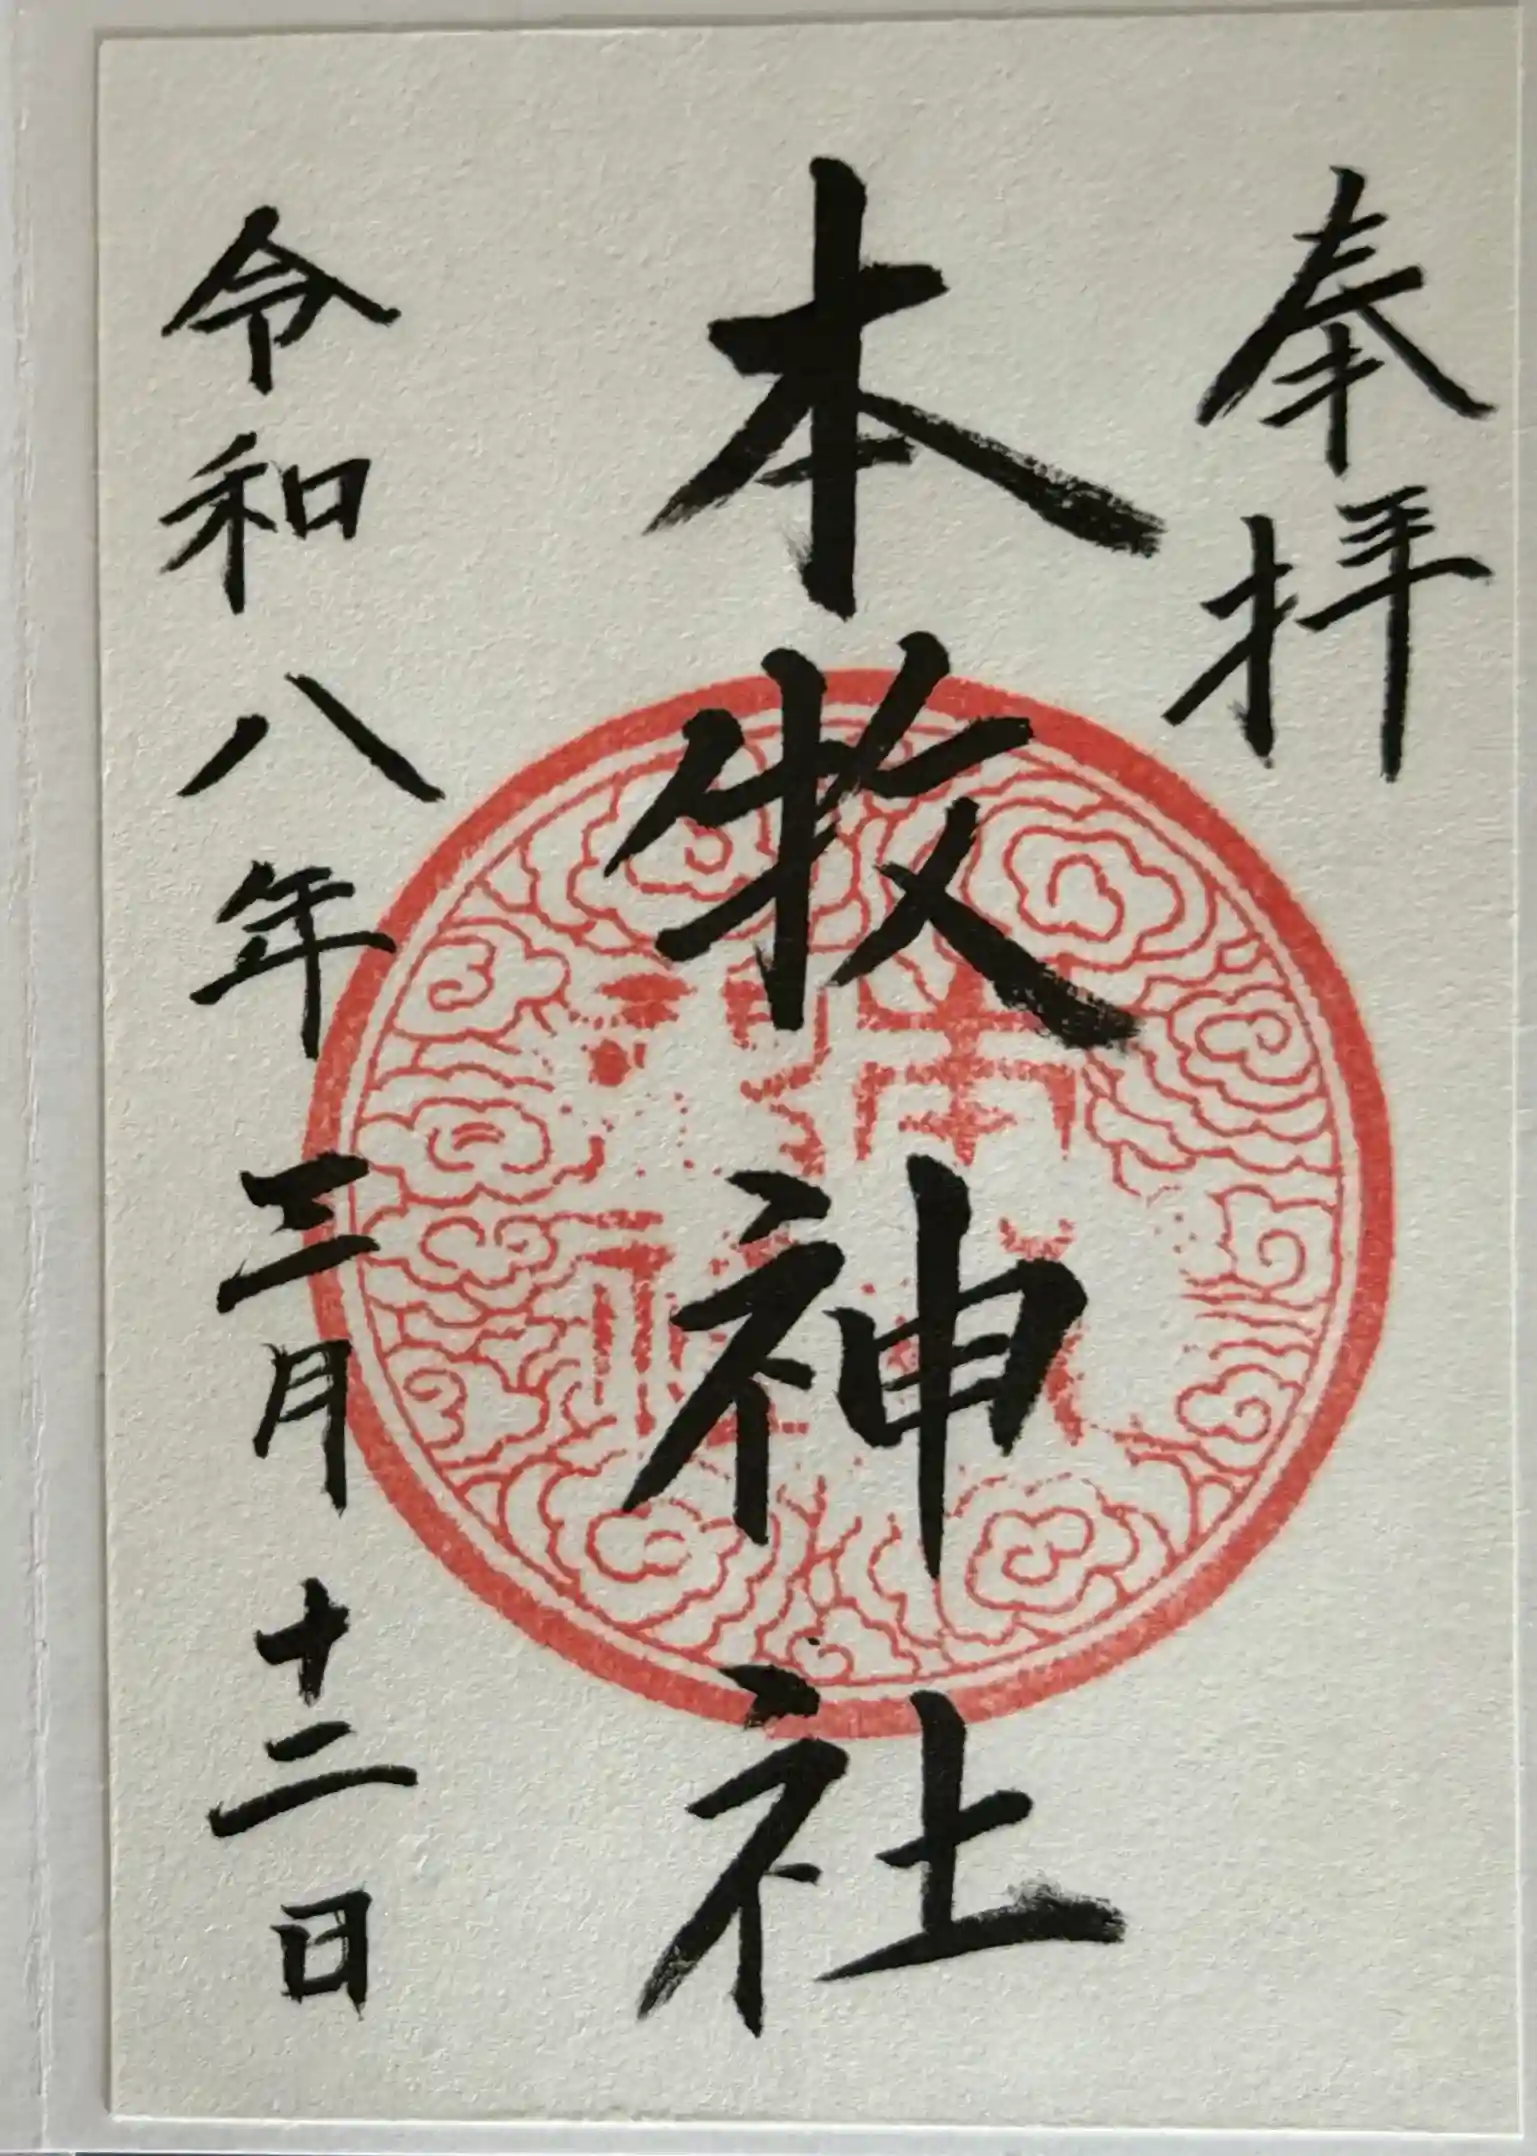 奉拝
本牧神社
令和八年三月十二日